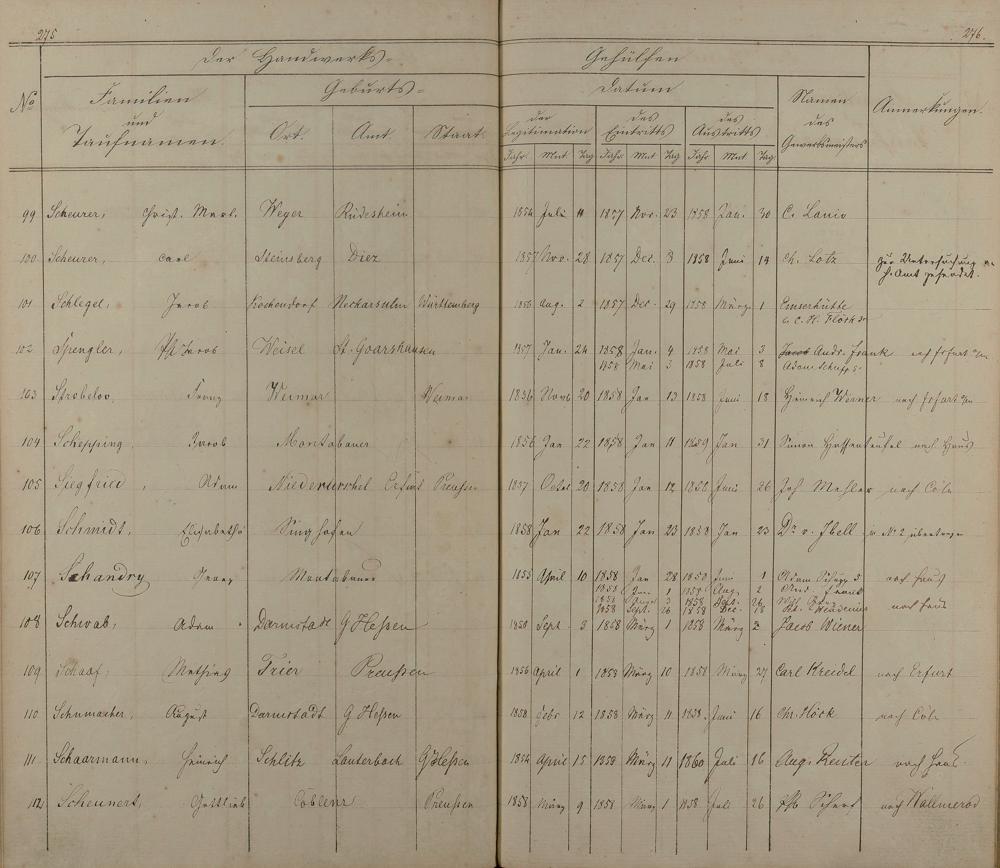 275
276.
Der Handwerks=
Gehülfen
No
Familien
und
Taufnamen.
Geburts=
Ort.
Amt
Staat
Datum
der
Legitimation
des
Eintritts
des
Austritts
Jahr. Mnt. Tag Jahr. Mnt Tag Jahr. Mnt Tag
Namen
des
Gewerbsmeisters
Anmerkungen.
99 Scheurer, Christ. Weger Rüdesheim 1854 Juli 1857 Nov. 23 1858 Jan. 30 C. Lanio
100 Scheurer, Carl Steinsberg Diez 1857 Nov. 28 1857 Dec. 3 1858 Juni 14 Ch. Lotz zur Untersuchung
101 Schlegel, Jacob Kochendorf Neckarsulm Württemberg 1856 Aug. 2 1857 Dec. 29 1858 März 1 Emserhütte
C. H. Flöck
102 Spengler, Jacob Weisel St. Goarshausen 1857 Jan. 24 1858 Jan. 4 1858 Mai 3 Jacob Andr. Frank
1858 Mai 3 1858 Juli 8 Adam Schupp
103 Franz Weimar Weimar 1856 20 1858 Jan 13 1858 Juni 18 Heinrich Werner
104 Schepping, Jacob Montabaur 1856 Jan 22 1858 Jan 11 1859 Jan 31 Simon Hassenteufel nach Haus
105 Siegfried, Adam Erfurt Preußen 1857 20 1858 Jan 12 1858 Juni 26 Joh Mehler nach Cöln
106 Schmidt, Elisabetha Singhofen 1858 Jan 22 1858 Jan 23 1858 Jan 23 Dr v. Ibell No 2
107 Schandry Georg Montabaur 1855 April 10 1858 Jan 28 1858 Juni 1 Adam Schupp nach Haus
1858 Juni 1 Aug. 2 And. Frank
1858 Sept. 26 1858 Dec. nach Haus
108 Schwab, Adam Darmstadt G Heßen 1850 Sept 3 1858 März 1 1858 März 2 Jacob Wiener
109 Schaaf, Mathias Trier Preußen 1856 April 1 1858 März 10 1858 März 27 Carl Kreidel nach Erfurt
110 Schumacher, August Darmstadt G Heßen 1858 Febr 12 1858 März 11 1858. Juni 16 Chr. Flöck nach Cöln
111 Schaarmann, Heinrich Schlitz Lauterbach G Heßen 1854 April 15 1858 März 11 1860 Juli 16 Aug. Reuter nach Haus
112 Scheunert, Gottlieb Coblenz Preußen 1858 März 9 1858 März 1 1858 Juli 26 nach Wallmerod